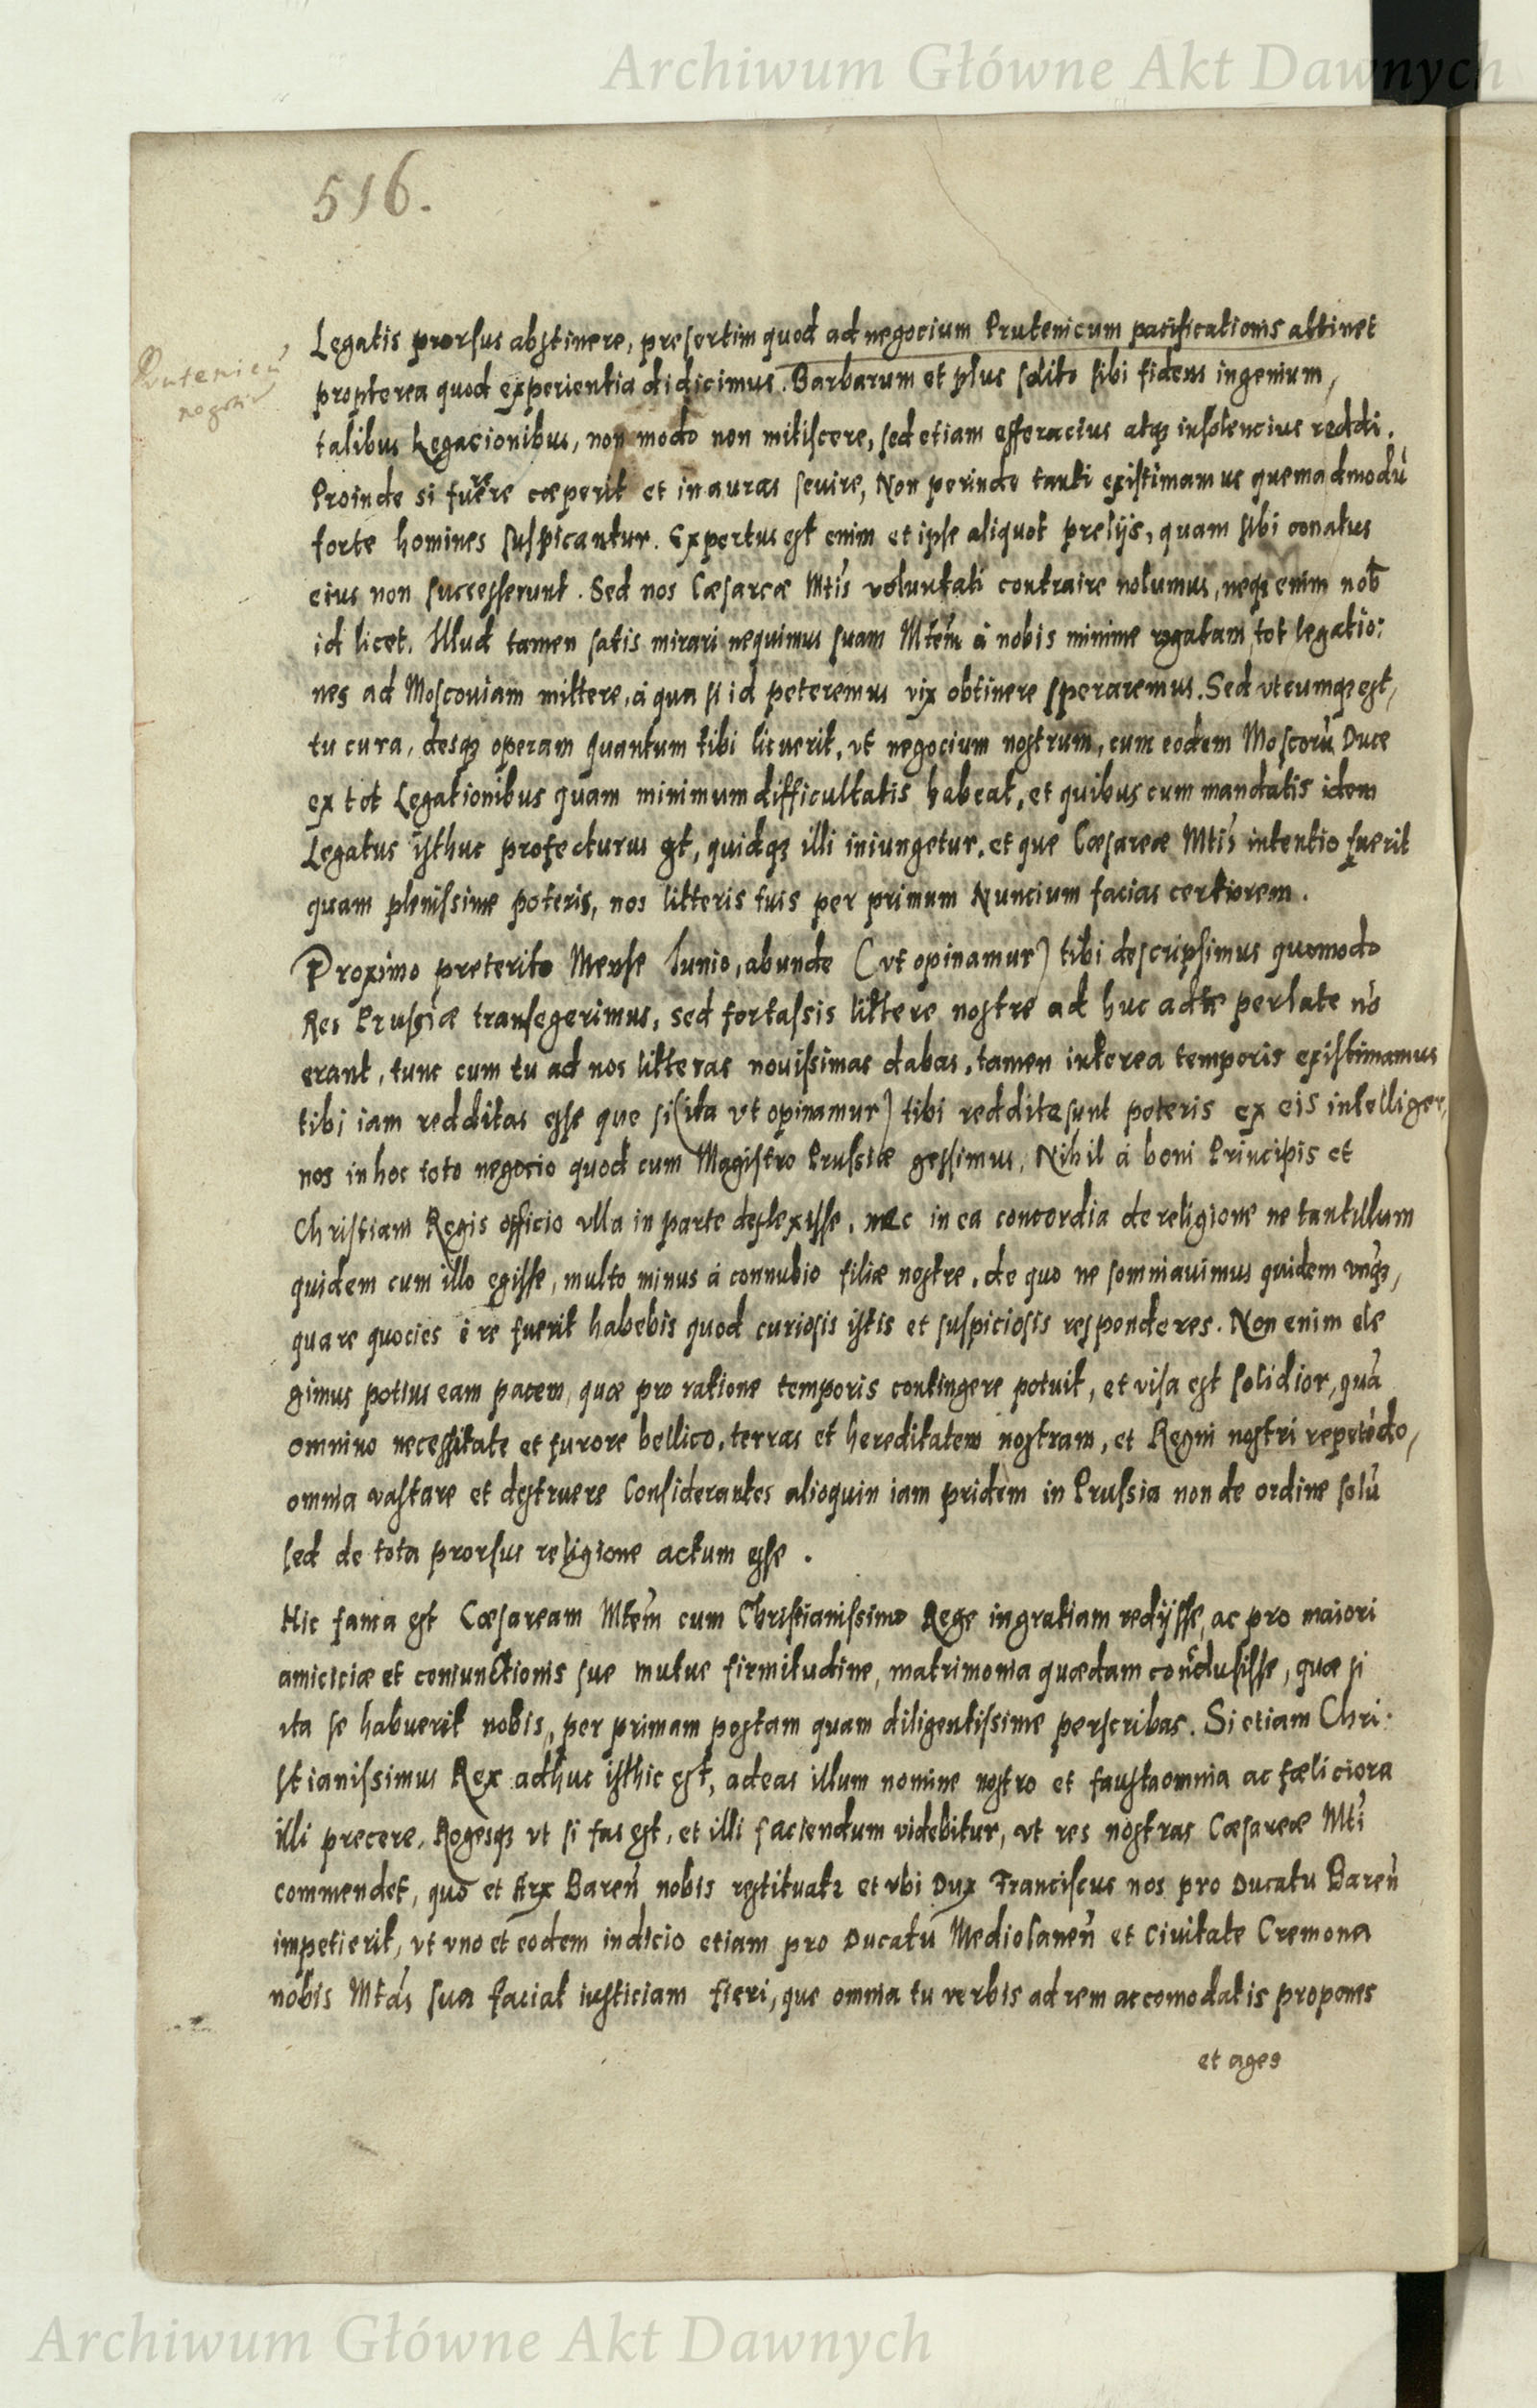 Archiwum Główne Akt Dawnych
516.
Legatis prorsus abstinere, presertim quod ad negocium Prutenicum pacificationis attinet
Prutenicu͂
propterea quod experientia didicimus. Barbarum et plus solito sibi fidens ingenium,
talibus Legacionibus, non modo non mitiscere, sed etiam efferacius atqꝫ insolencius reddi.
Proinde si furere cœperit et in auras sevire, Non perinde tanti existimamus quemadmodu͂
forte homines suspicantur. Expertus est enim et ipse aliquot prelijs, quam sibi conatus
eius non successerunt. Sed nos Cæsareæ Mtis voluntati contraire nolumus, neqꝫ enim nob͂
id licet. Illud tamen satis mirari nequimus suam Mtem͂ á nobis minime rogatam, tot legatio:
nes ad Moscouiam mittere, á qua si id peteremus vix obtinere speraremus. Sed vtcumqꝫ est,
tu cura, desqꝫ operam quantum tibi licuerit, vt negocium nostrum, cum eodem Moscoru͂ Duce
ex tot Legationibus quam minimum difficultatis habeat, et quibus cum mandatis idem
Legatus isthuc profecturus est, quidqꝫ illi iniungetur, et que Cæsareæ Mtis intentio fuerit
quam plenissime poteris, nos litteris tuis per primum Nuncium facias certiorem.
Proximo preterito Mense Iunio, abunde (vt opinamur) tibi descripsimus quomodo
Res Prussiæ transegerimus, sed fortassis littere nostre ad huc ad te perlate no͂
erant, tunc cum tu ad nos litteras nouissimas dabas, tamen interea temporis existimamus
tibi iam redditas esse que si (ita vt opinamur) tibi reddite sunt poteris ex eis intelliger,
nos in hoc toto negocio quod cum Magistro Prussiæ gessimus, Nihil á boni Principis et
Christiani Regis officio vlla in parte deflexisse, nec in ea concordia de religione ne tantillum
quidem cum illo egisse, multo minus á connubio filiæ nostre, de quo ne somniauimus quidem vnqꝫ,
quare quocies é re fuerit habebis quod curiosis istis et suspiciosis responderes. Non enim ele
gimus potius eam pacem, quæ pro ratione temporis contingere potuit, et visa est solidior, qua͂
omnino necessitate et furore bellico, terras et hereditatem nostram, et Regni nostri repete͂do,
omnia vastare et destruere Considerantes alioquin iam pridem in Prussia non de ordine solu͂
sed de tota prorsus religione actum esse.
Hic fama est Cæsaream Mtem͂ cum Christianissimo Rege in gratiam redijsse, ac pro maiori
amiciciæ et coniunctionis sue mutue firmitudine, matrimonia quædam conclusisse, quæ si
ita se habuerit nobis, per primam postam quam diligentissime perscribas. Si etiam Chri:
stianissimus Rex adhuc isthic est, adeas illum nomine nostro et fausta omnia ac fæliciora
illi precere, Rogesqꝫ vt si fas est, et illi faciendum videbitur, vt res nostras Cæsareæ Mti
commendet, quo et Arx Baren͂ nobis restituatꝛ et vbi Dux Franciscus nos pro Ducatu Baren͂
impetierit, vt vno et eodem indicio etiam pro Ducatu Mediolanen͂ et Ciuitate Cremona
nobis Mtas sua faciat iusticiam fieri, que omnia tu verbis ad rem accomodatis propones
et ages
Archiwum Główne Akt Dawnych